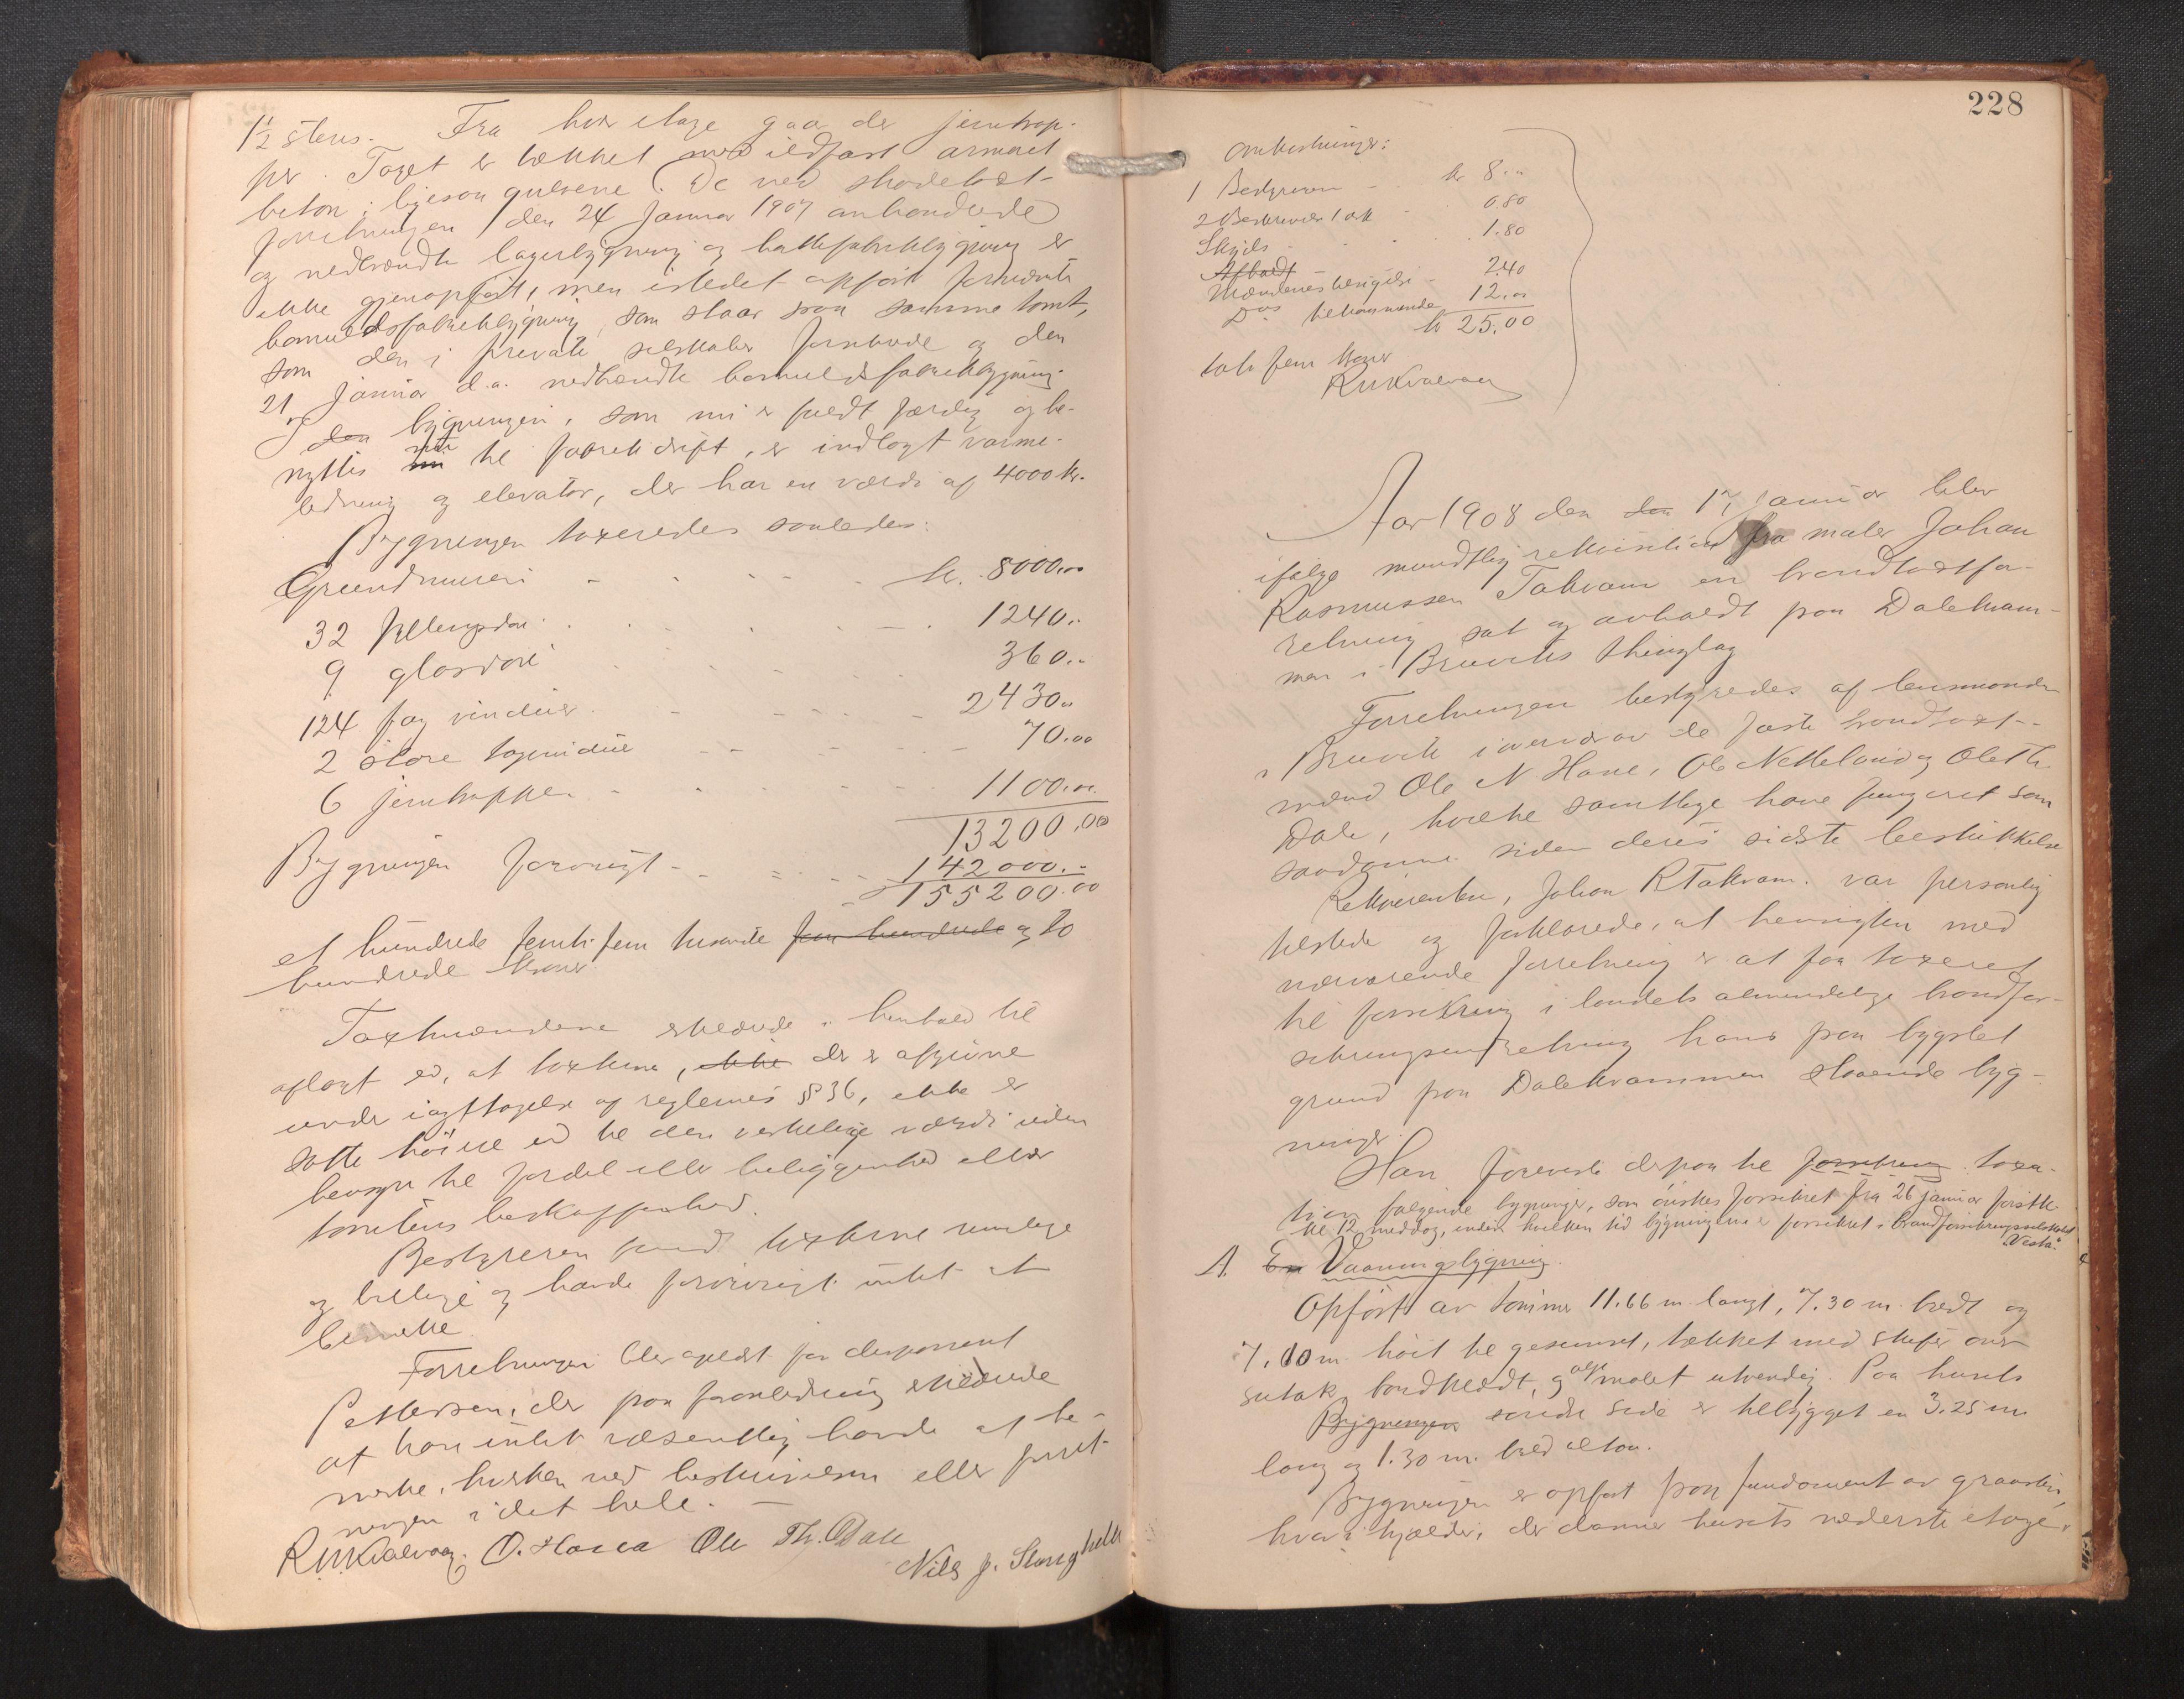 1½ stens. Fra hver etage gaar der jerntrap-
per. Taget er tækket med ildfast armeret
beton, ligesom gulvene. De ved skadetaxt-
forretningen den 24 Januar 1907 omhandlede
og nedbrændte lagerbygning og hattefabrikbygning er
ikke gjenopført, men istedet opført forannævnte
bomuldsfabrikbygning, som staar paa samme tomt,
som den i private selskaber forsikrede og den
21 Januar d.a. nedbrændte bomuldsfabrikbygning.
I den bygningen, som nu er fuldt færdig og be-
nyttes nu til fabrikdrift, er indlagt varme-
ledning og elevator, der har en værdi af 4000 kr.
Bygningen taxeredes saaledes:
Grundmuren - - - - kr. 8000.00
32 fyllingsdøre - - - 1240.-
9 glasdøre - - - 360.-
124 fag vinduer - - - 2430.-
2 store tagvinduer - - - 70.00
6 jerntrapper - - - 1100.00
13200.00
Bygningen forøvrigt - - - 142000.-
155200.00
et hundrede femti fem tusende fem hundrede og to
hundrede kroner
Taxtmændene erklærede i henhold til
aflagt ed, at taxterne, ikke der er afgivne
under iagttagelse af reglernes § 36, ikke er
satte høiere end til den virkelige værdi uden
hensyn til fordel eller beliggenhed eller
tomtens beskaffenhed.
Bestyreren fandt taxterne rimelige
og billige og havde forøvrigt intet at
bemerke.
Forretningen blev oplæst for disponent
Pettersen, der paa foranledning erklærede
at han intet væsentlig havde at be-
merke, hverken ved beskrivelsen eller forret-
ningen i det hele. —
R. M. Kvalvaag. O. Haua Ole Th. Dale
Nils J. Slonghelle
228
Omkostninger:
1 Bestyreren - kr 8.-
2 Beskrivelse 1 ark - 0.80
Skyds - - 1.80
Afholdt
Mændenes besigtelse - 2.40
Dos tilkommende 12.00
kr 25.00
tolv fem kroner
R M Kvalvaag
Aar 1908 den den 17 Januar blev
ifølge mundtlig rekvisition fra maler Johan
Rasmussen Takvam en brandtaxtfor-
retning sat og avholdt paa Dalekvam-
men i Bruvik thinglag
Forretningen bestyredes af lensmanden
i Bruvik i overvær av de faste brandtaxt-
mænd Ole N. Haue, Ole Nettelandog Ole Th.
Dale, hvilke samtlige have fungeret som
saadanne siden deres sidste beskikkelse
Rekvirenten, Johan R Takvam. var personlig
tilstede og forklarede, at hensigten med
nærværende forretning er at faa taxeret
til forsikring i landets almindelige brandfor-
sikringsindretning hans paa bygslet
grund paa Dalekvammen staaende byg-
ninger.
Han foreviste derpaa til forsikring taxa-
tion følgende bygninger, som ønskes forsikret fra 26 januar førstk.
kl. 12 middag, inden hvilken tid bygningerne er forsikret i brandforsikringsselskabet
"Vesta".
A. En Vaaningsbygning.
Opført av tømmer 11.66 m. langt, 7.30 m. bredt og
7.00 m. høit til gesimset, tækket med skifer over
sutak, bordklædt, og oljemalet utvendig. Paa husets
Bygningen søndre side er tilbygget en 3.25 m.
lang og 1.30 m. bred altan.
Bygningen er opført paa fundament av graasten,
hvori kjælder, der danner husets nederste etage,